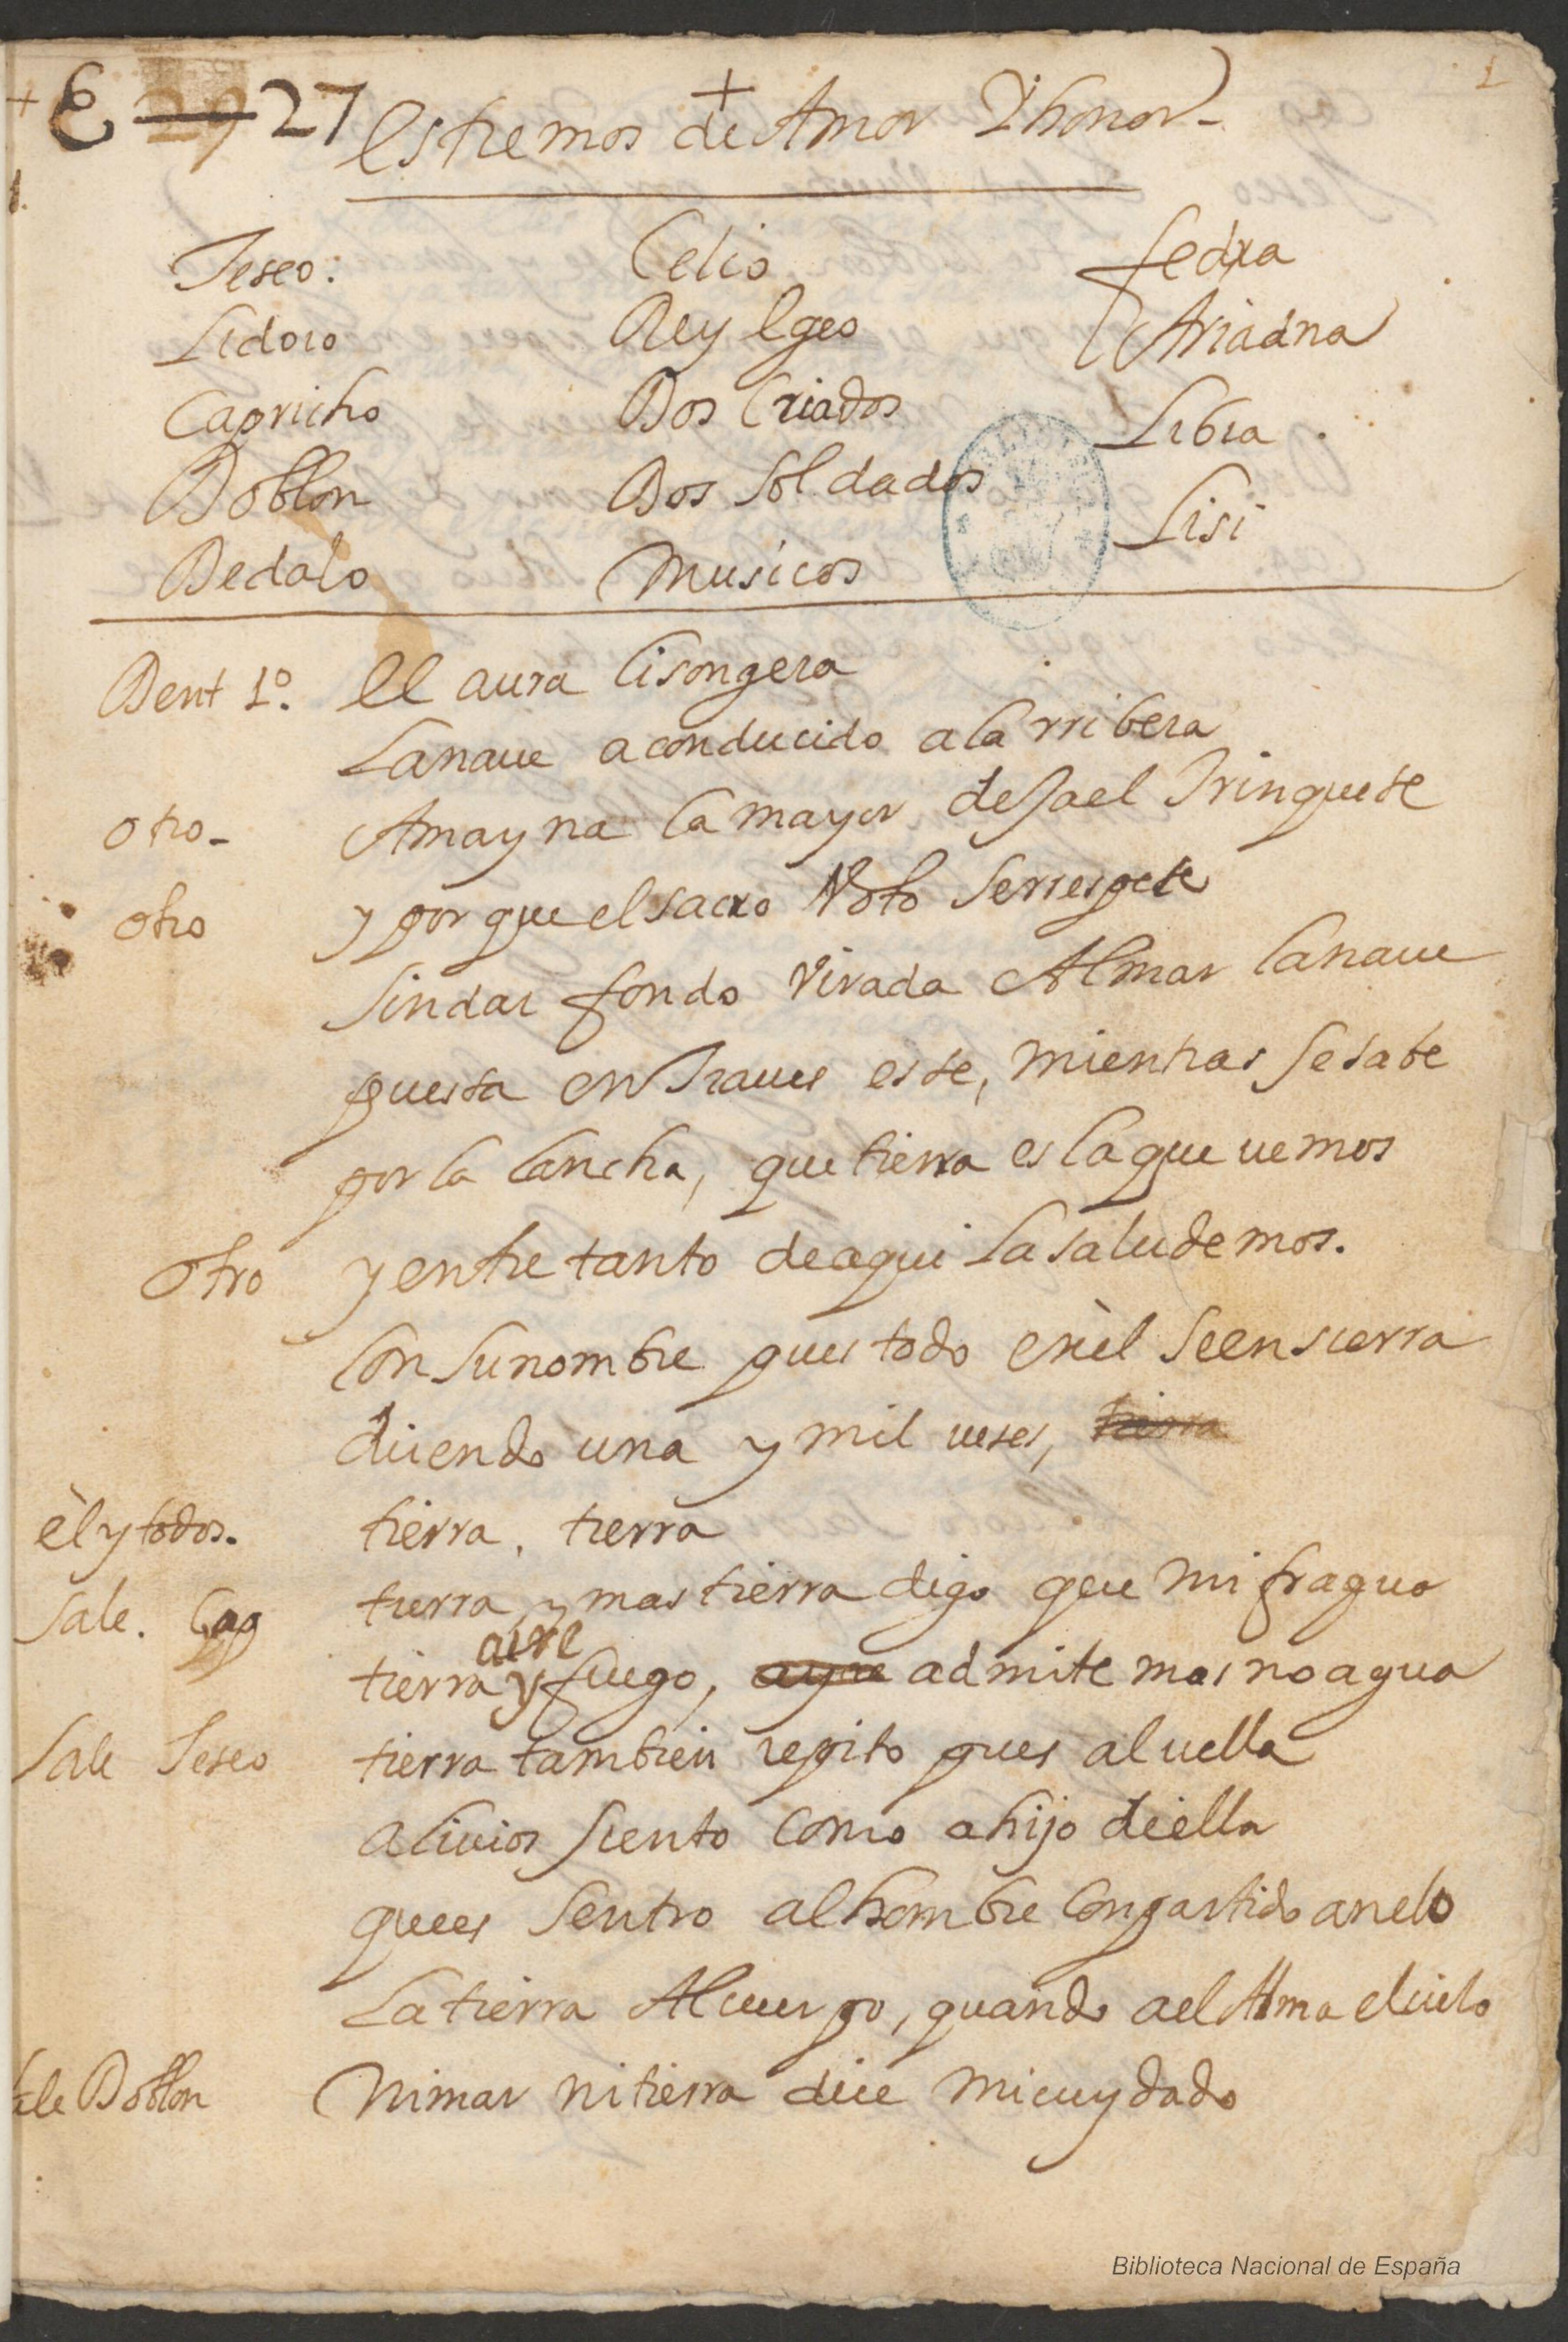 + 6 1
E 29 27 Estremos de Amor Y honor
1.
Teseo: Celio fedra
Lidoro Rey Egeo Ariadna
Capricho Dos Criados Libia
Doblon Dos Soldados Lisi
Dedalo Musicos
Dent 1º. El aura lisongera
La naue a conducido a la rribera
otro- Amayna la mayor deja el Trinquete
otro y por que el sacro Voto se rrespete
sin dar fondo virada Al mar la naue
puesta en Traues este, mientras se sabe
por la lancha, que tierra es la que uemos
otro y entre tanto de aqui la saludemos.
con su nombre pues todo en èl se ensierra
diciendo una y mil ueses, tierra
èl y todos. tierra, tierra
Sale. Cap tierra, y mas tierra digo que mi fragua
aire
tierra y fuego, ayre admite mas no agua
Sale Teseo tierra tambien repito pues al uella
aliuios siento como a hijo de ella
que es sentro al hombre con partido anelo
La tierra Al cuerpo, quando a el Alma el cielo
Sale Doblon Ni mar ni tierra dice mi cuydado
Biblioteca Nacional de España